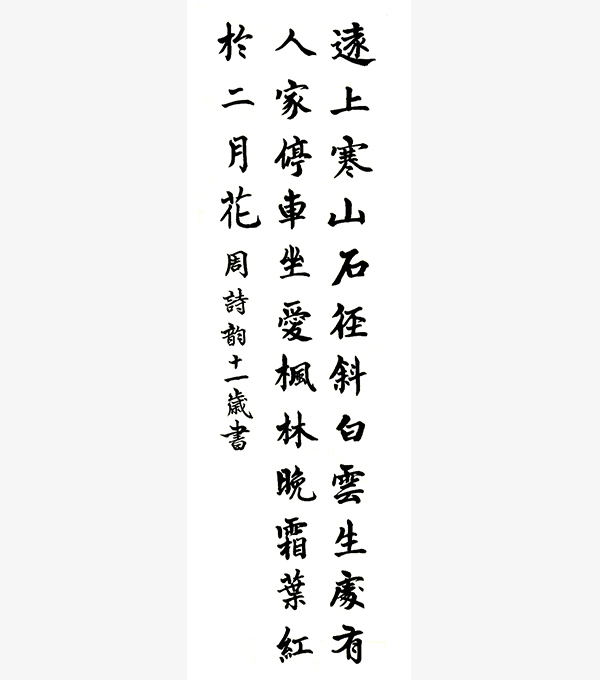 遠上寒山石径斜白雲生處有
人家停車坐愛楓林晚霜葉紅
於二月花 周詩韵十一歲書